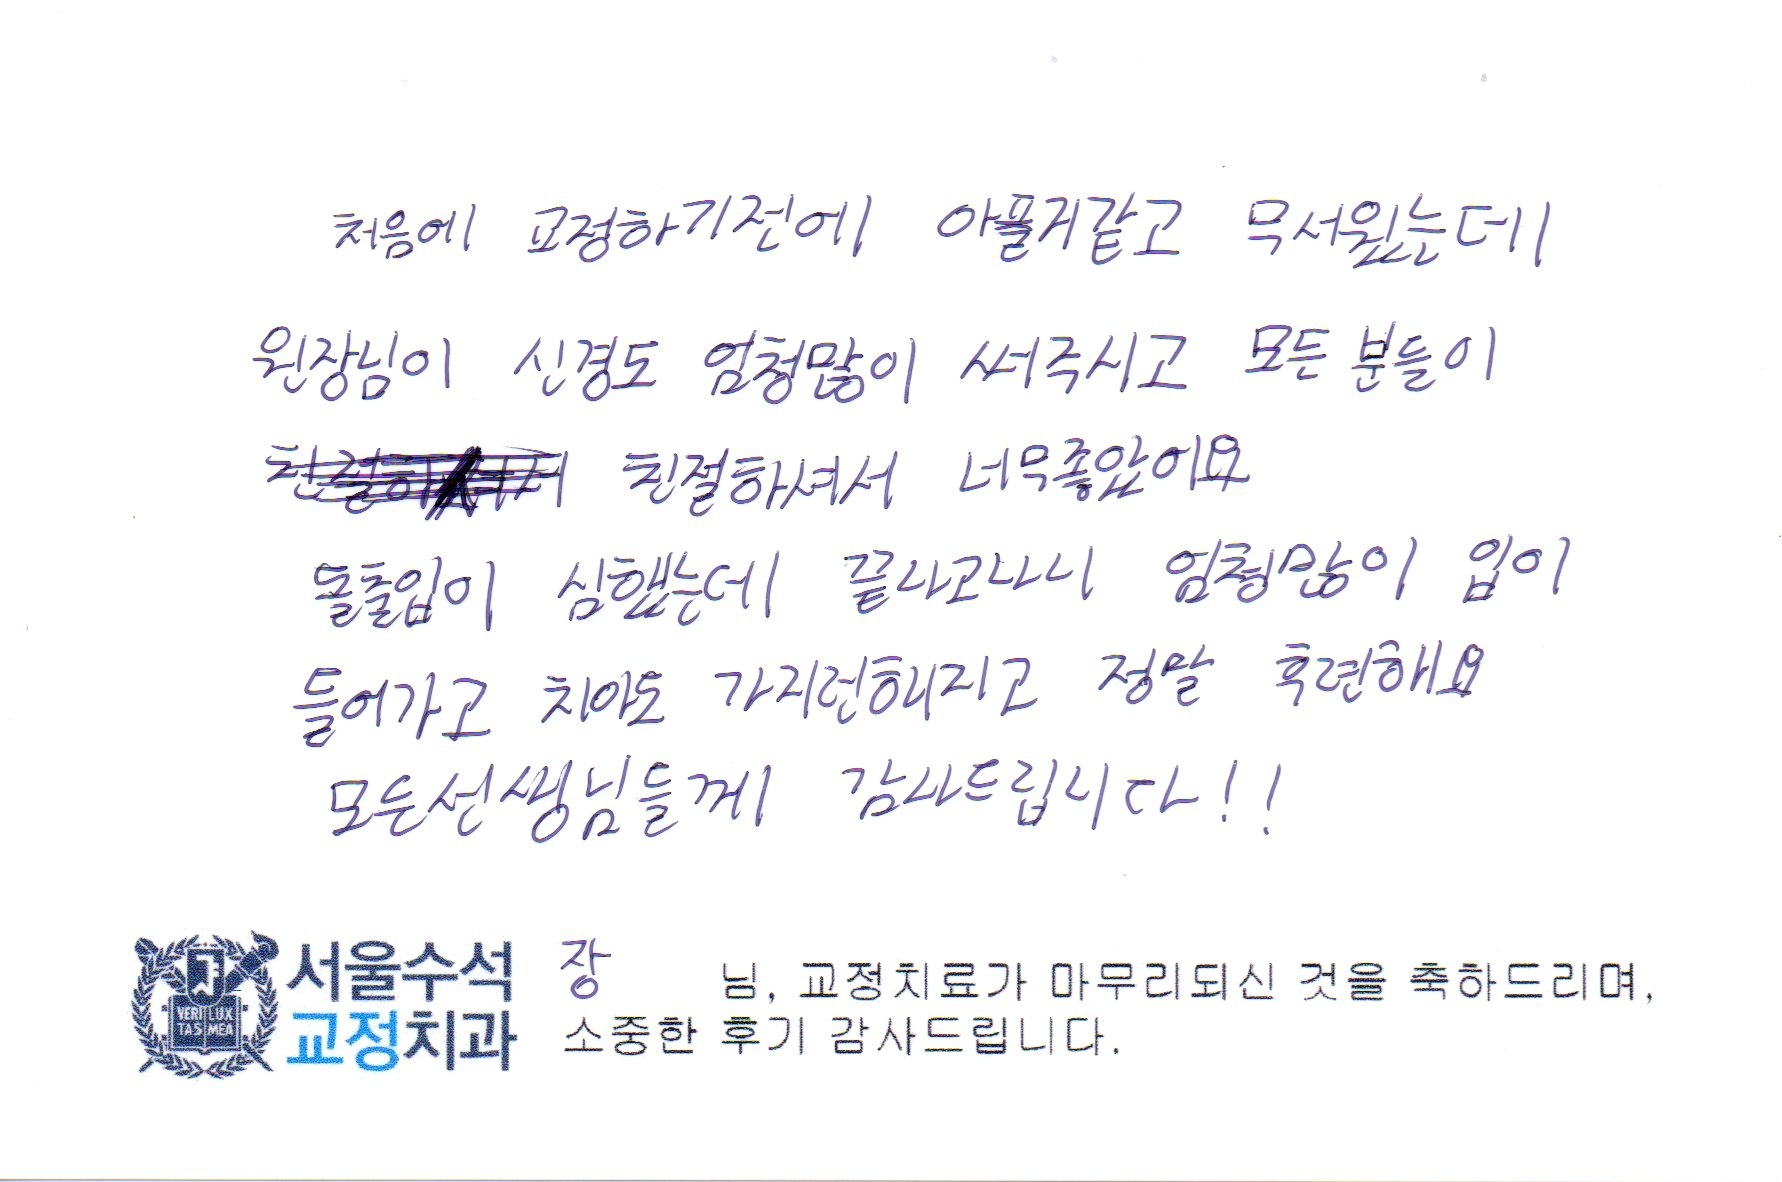 처음에 교정하기전에 아플거같고 무서웠는데
원장님이 신경도 엄청많이 써주시고 모든 분들이
친절하셔서 너무좋았어요
돌출입이 심했는데 끝나고나니 엄청많이 입이
들어가고 치아도 가지런해지고 정말 후련해요
모든선생님들께 감사드립니다!!
서울수석
교정치과
VERI LUX
TAS MEA
장 님, 교정치료가 마무리되신 것을 축하드리며,
소중한 후기 감사드립니다.